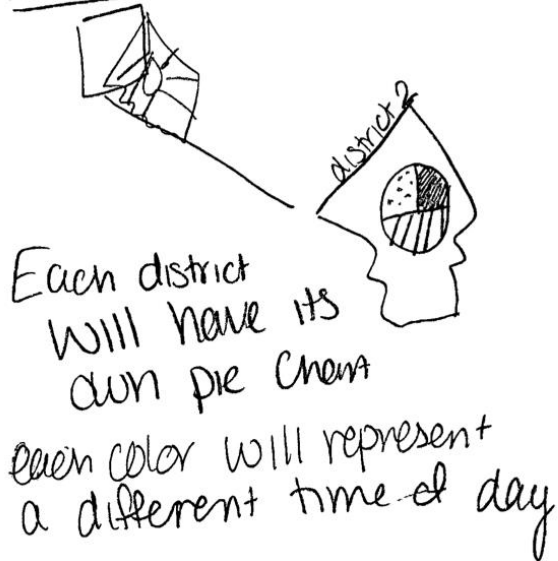 district 2
Each district
will have its
own pie chart
each color will represent
a different time of day